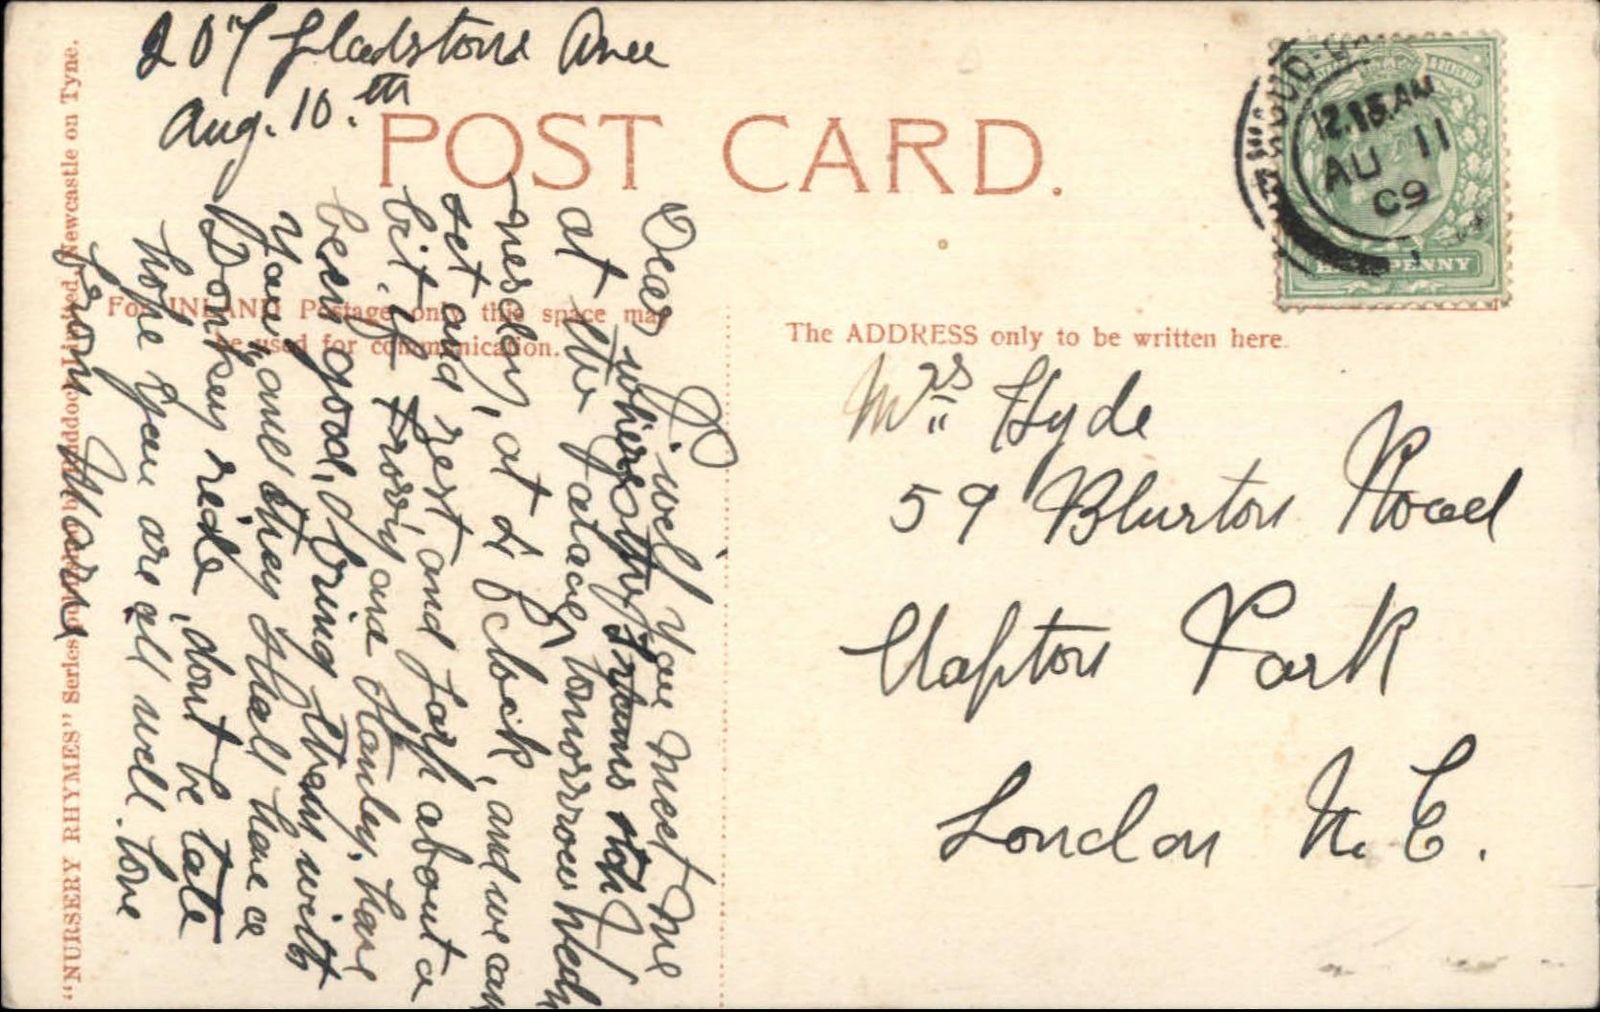 207 Gladstone Ave
Aug. 10.th
POST CARD.
For INLAND Postage only this space may
be used for communication.
The ADDRESS only to be written here.
"NURSERY RHYMES" Series Limited, Newcastle on Tyne.
12.15 AM
AU 11
09
HALFPENNY
Dear will you meet me
where the trams stop
at the Palace, tomorrow Wed
nesday, at 2 o'clock, and we can
set and rest and talk about a
bit. If and Stanley, have
been good, bring them with
you, and they shall have a
Donkey ride, dont be late
hope you are all well. Love
from
Mrs Hyde
59 Blurton Road
Clapton Park
London N.E.